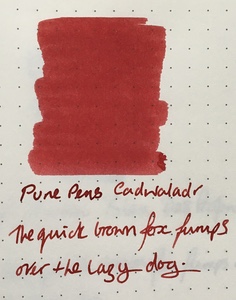 Pure Pens Cadwaladr
The quick brown fox jumps
over the lazy dog.